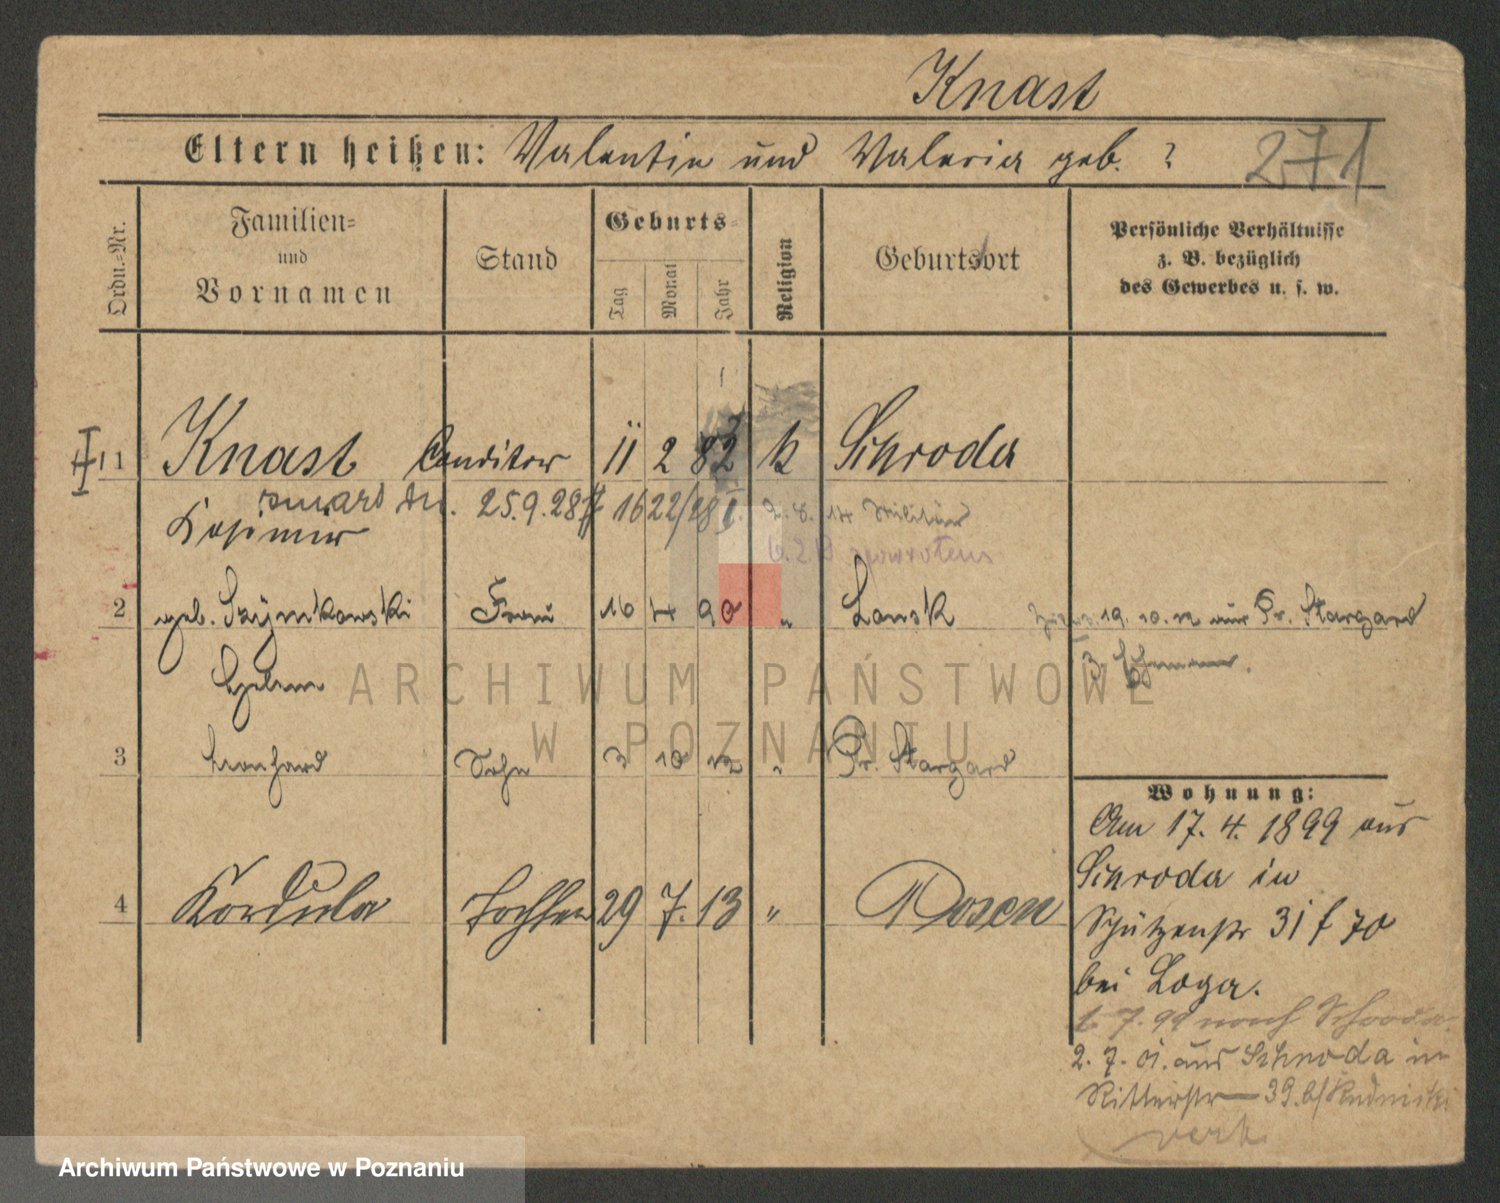 Knast
Eltern heißen: Valentin und Valeria geb. ?
271
Ordn.=Nr.
Familien=
und
Vornamen
Stand
Geburts=
Tag
Monat
Jahr
Religion
Geburtsort
Persönliche Verhältnisse
z. B. bezüglich
des Gewerbes u. s. w.
1 Knast Conditor 11 2 82 k Schroda
zmarł dn. 25.9.28 16 22/28 2.8.14 Militär
Kasimir
powrotem
2 geb. Szymkowski Frau 16 4 90 " Lonsk
19. 10. 12 aus Pr. Stargard
Helene
3 Leonhard Sohn 3 10 12 " Pr. Stargard
4 Kordula Tochter 29 7. 13 " Posen
Wohnung:
Am 17. 4. 1899 aus
Schroda in
Schützenstr 31 f 70
bei Loga.
7. 99 nach Schroda.
2. 7. 01. aus Schroda in
Ritterstr 39. b/ Rudnicki
verh.
ARCHIWUM PAŃSTWOWE
W POZNANIU
Archiwum Państwowe w Poznaniu